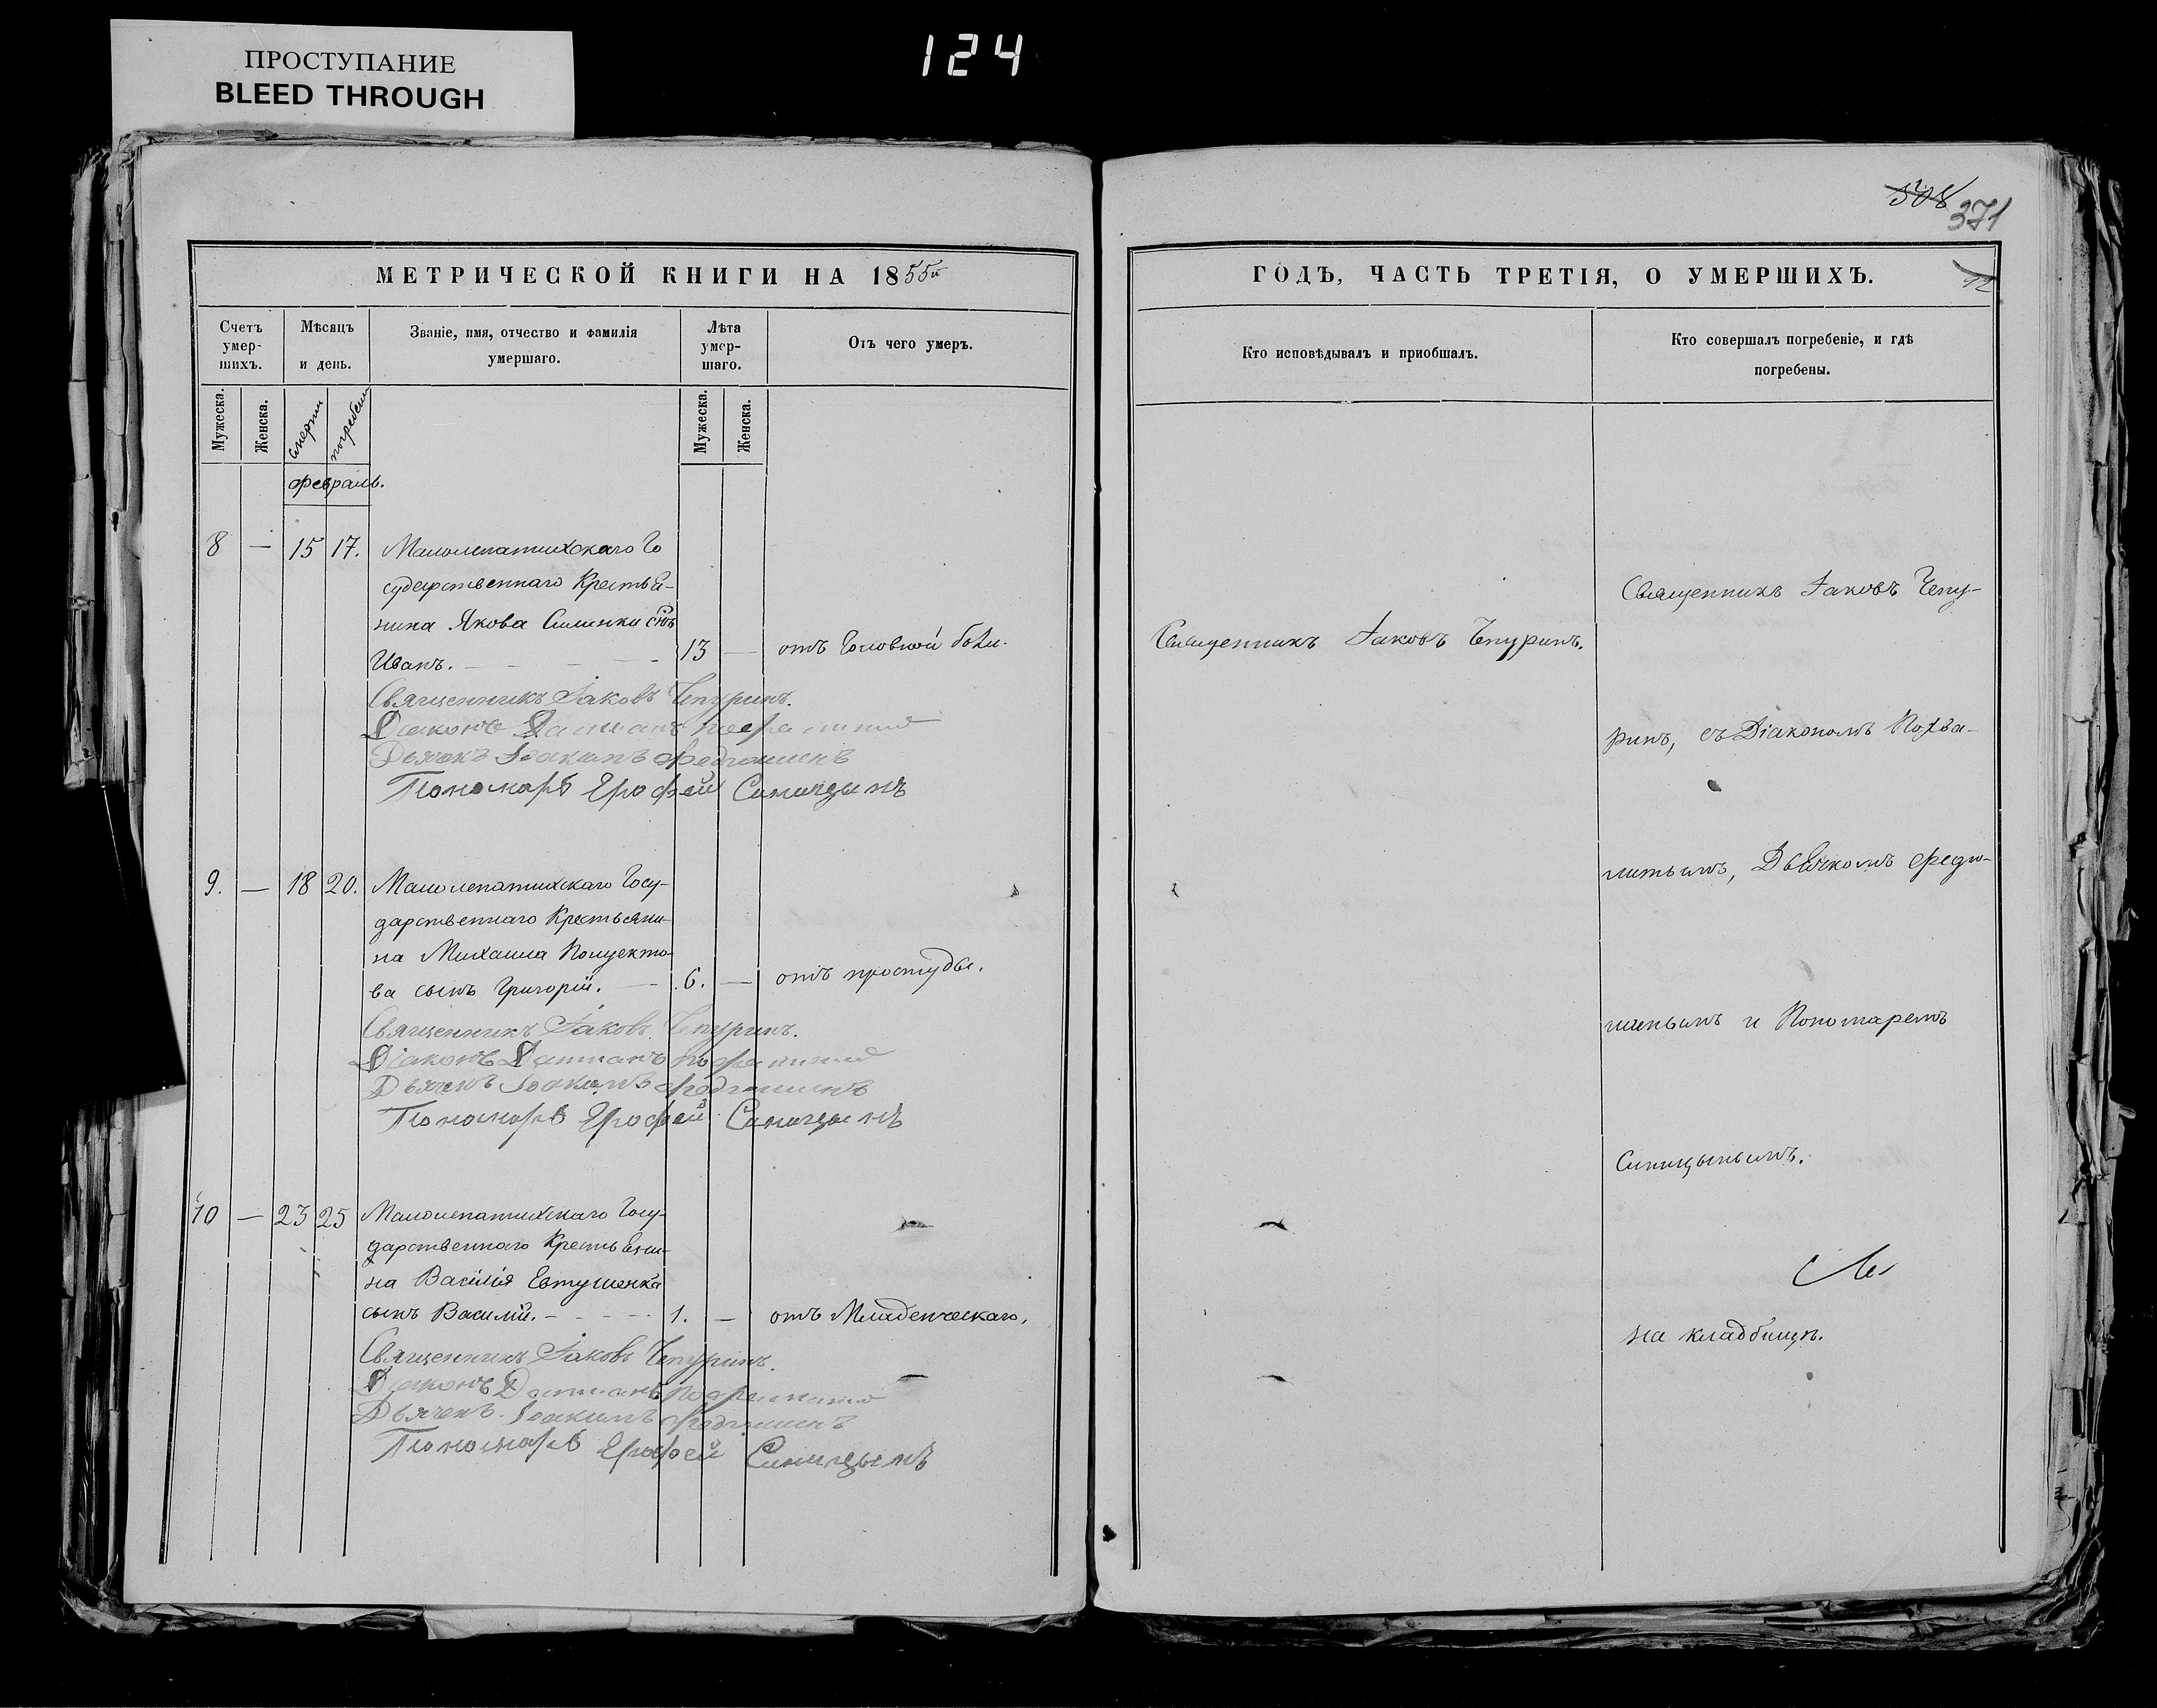 ПРОСТУПАНИЕ
BLEED THROUGH
124
МЕТРИЧЕСКОЙ КНИГИ НА 1855й
Счетъ умер-шихъ.
Мѣсяцъ и день.
Званіе, имя, отчество и фамилія умершаго.
Лѣта умер-шаго.
Отъ чего умеръ.
Мужеска.
Женска.
смерти
погребенія
Мужеска.
Женска.
февраль.
8 — 15 17. Малолепатихскаго Го
сударственнаго Крестья-
нина Якова Силинки сынъ
Иванъ. — 13 — отъ головной боли.
Священникъ Іаковъ Чепуринъ.
Діаконъ Даміанъ
Дьячекъ Іоакимъ Федюшинъ
Пономарь Ерофей Синицынъ
9. — 18 20. Малолепатихскаго Госу-
дарственнаго Крестьяни-
на Михаила Полуекто-
ва сынъ Григорій. — 6. — отъ простуды.
Священникъ Іаковъ Чепуринъ.
Діаконъ Даміанъ
Дьячекъ Іоакимъ Федюшинъ
Пономарь Ерофей Синицынъ
10 — 23 25 Малолепатихскаго Госу-
дарственнаго Крестьяни-
на Василія Евтушенка
сынъ Василій. — 1. — отъ Младенческаго.
Священникъ Іаковъ Чепуринъ.
Діаконъ Даміанъ
Дьячекъ Іоакимъ Федюшинъ
Пономарь Ерофей Синицынъ
508
371
ГОДЪ, ЧАСТЬ ТРЕТІЯ, О УМЕРШИХЪ.
12
Кто исповѣдывалъ и приобшалъ.
Кто совершалъ погребеніе, и гдѣ
погребены.
Священникъ Іаковъ Чепуринъ.
Священникъ Іаковъ Чепу-
ринъ, съ Діакономъ Похва-
литымъ, Дьячкомъ Федю-
шинымъ и Пономаремъ
Синицынымъ.
на кладбищѣ.